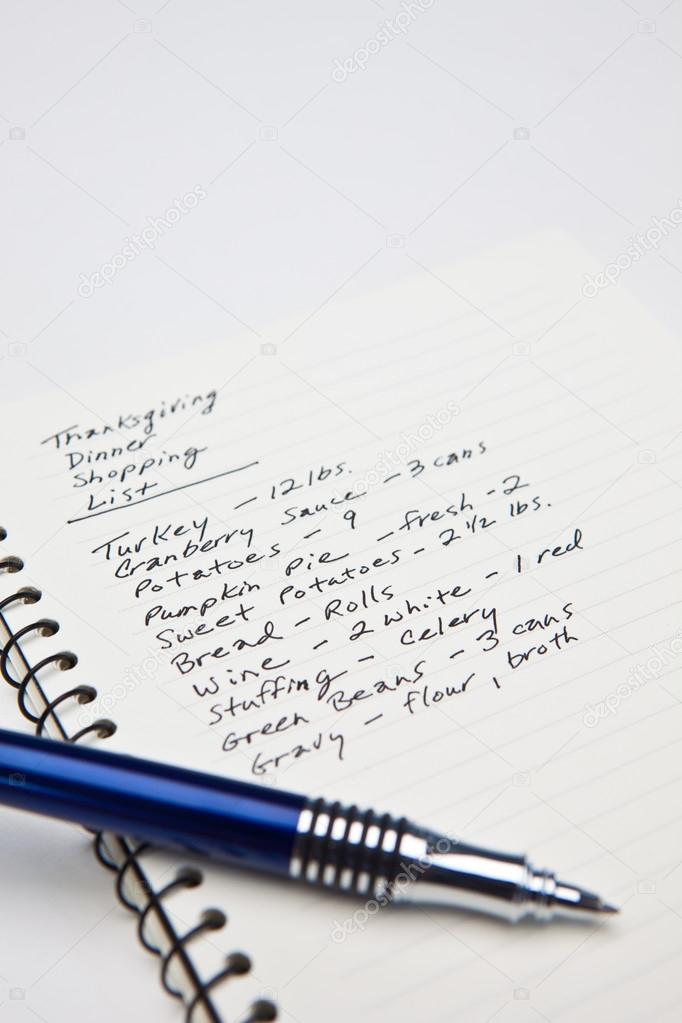 Thanksgiving
Dinner
Shopping
List
Turkey - 12 lbs.
Cranberry Sauce - 3 cans
Potatoes - 9
Pumpkin Pie - fresh - 2
Sweet Potatoes - 2 1/2 lbs.
Bread - Rolls
Wine - 2 white - 1 red
Stuffing - celery
Green Beans - 3 cans
Gravy - flour, broth